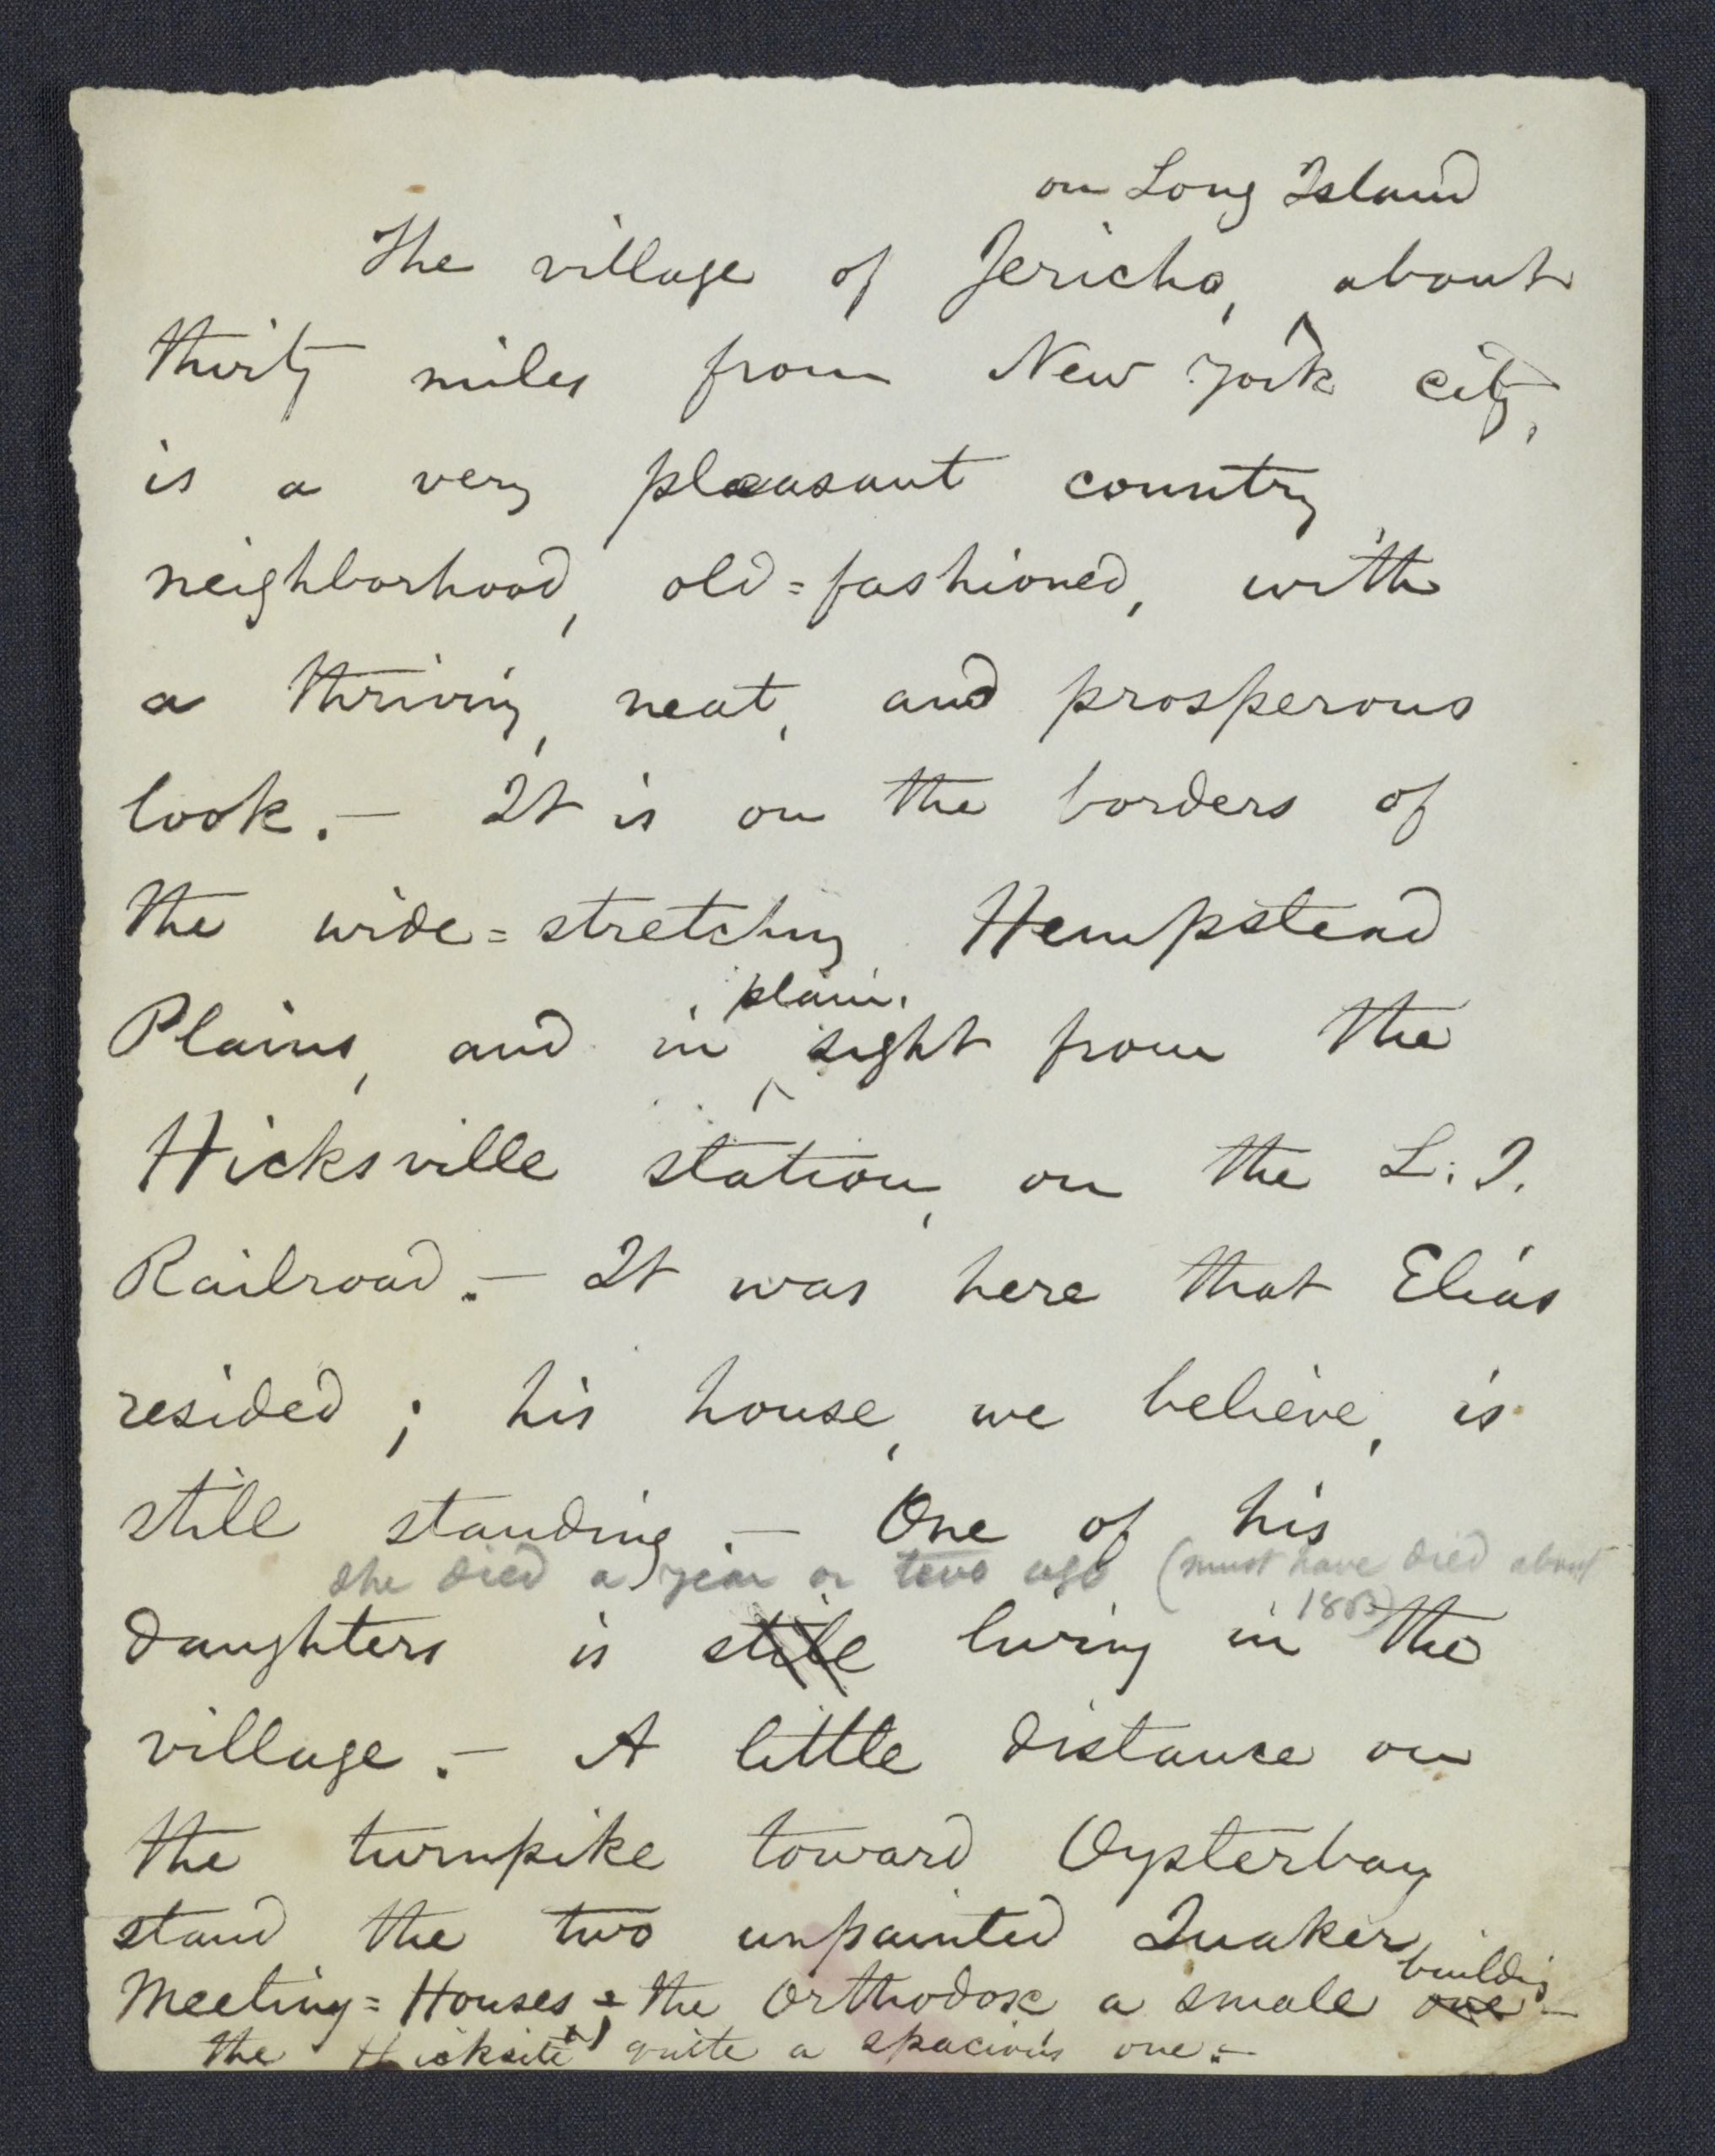 on Long Island
The village of Jericho, about
thirty miles from New York city,
is a very pleasant country
neighborhood, old=fashioned, with
a thriving, neat, and prosperous
look.— It is on the borders of
the wide=stretching Hempstead
plain
Plains, and in sight from the
Hicksville station, on the L. I.
Railroad.— It was here that Elias
resided; his house, we believe, is
still standing — One of his
she died a year or two ago (must have died about
daughters is still living in the
village.— A little distance on
the turnpike toward Oysterbay
stand the two unpainted Quaker
building
Meeting=Houses; the Orthodox a small one—
the Hicksite quite a spacious one.—